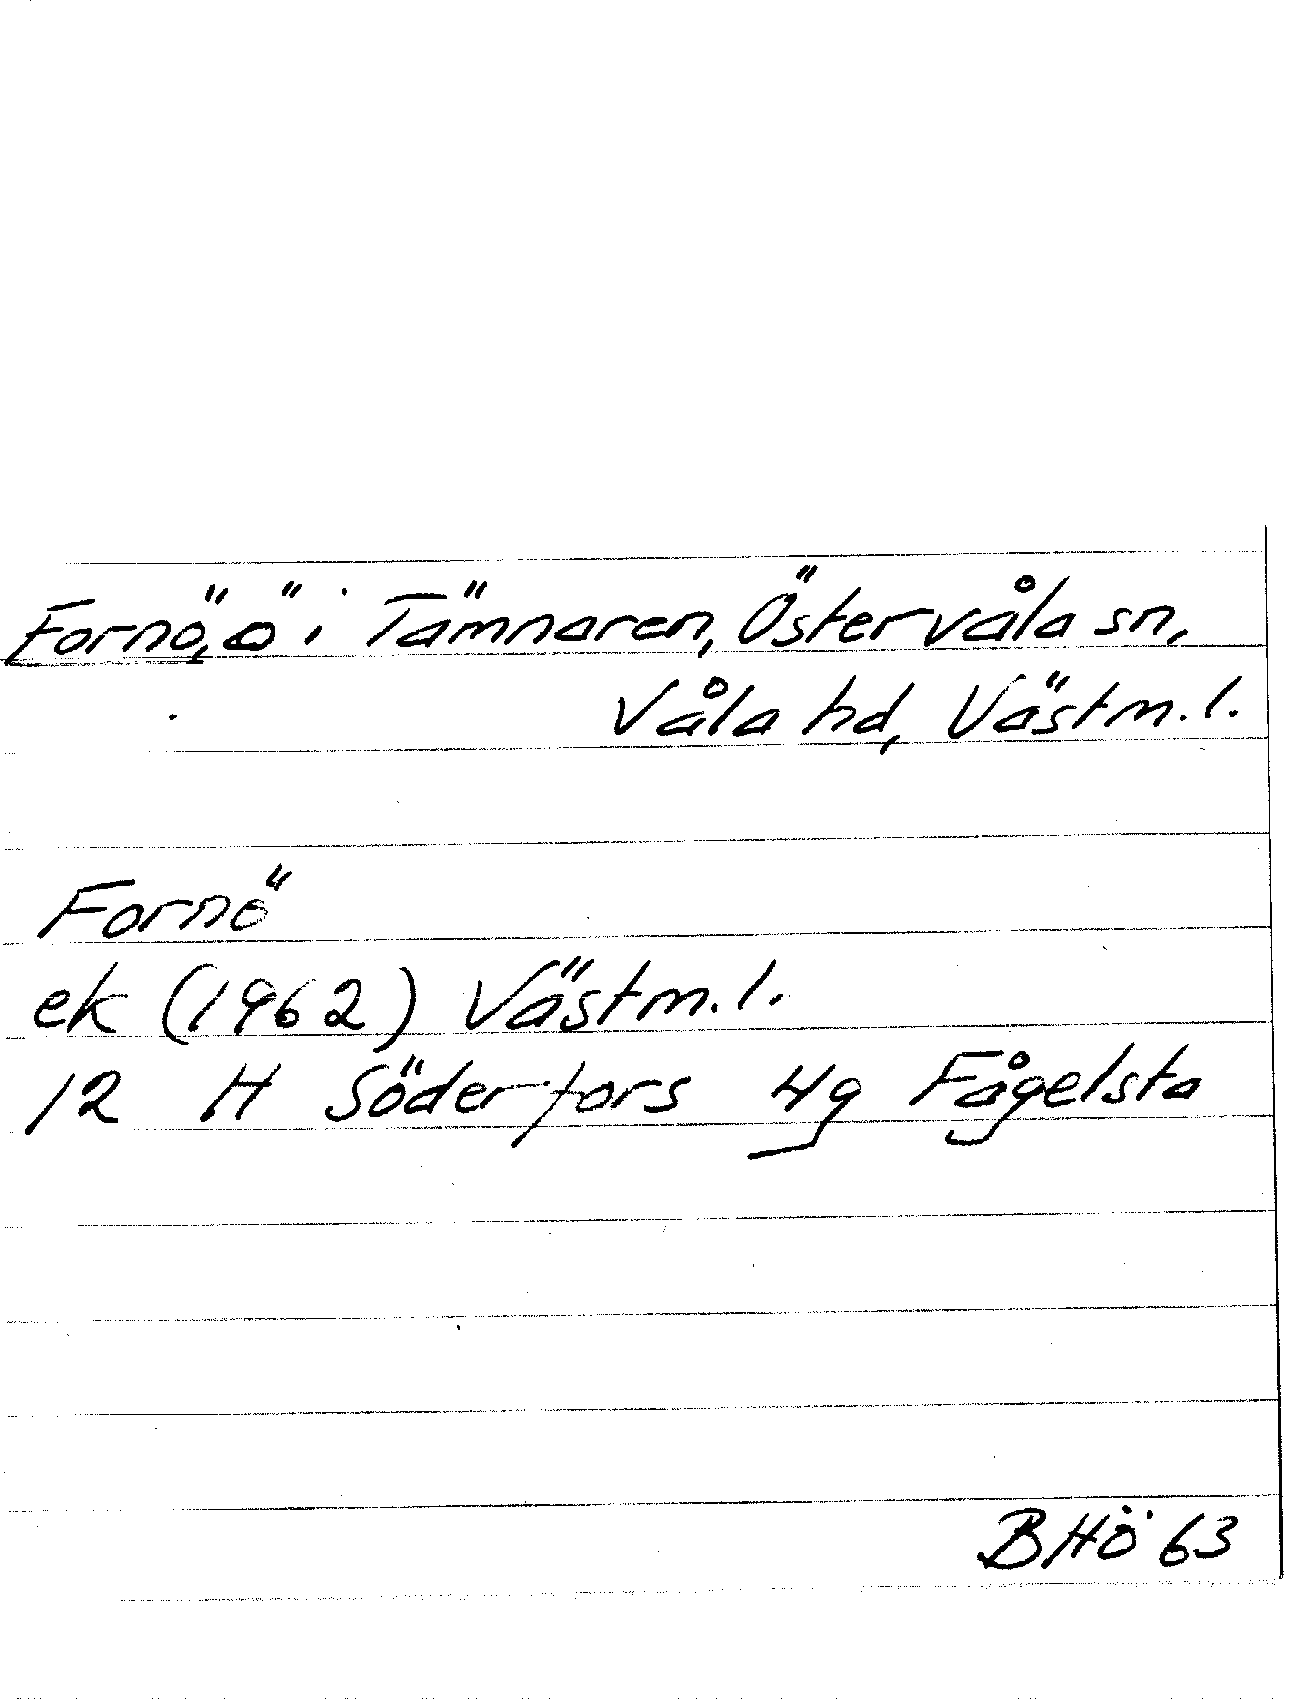 Fornö, ö i Tämnaren, Östervåla sn,
Våla hd, Västm. l.
Fornö
ek (1962) Västm. l.
12 H Söderfors 4g Fågelsta
BHÖ 63